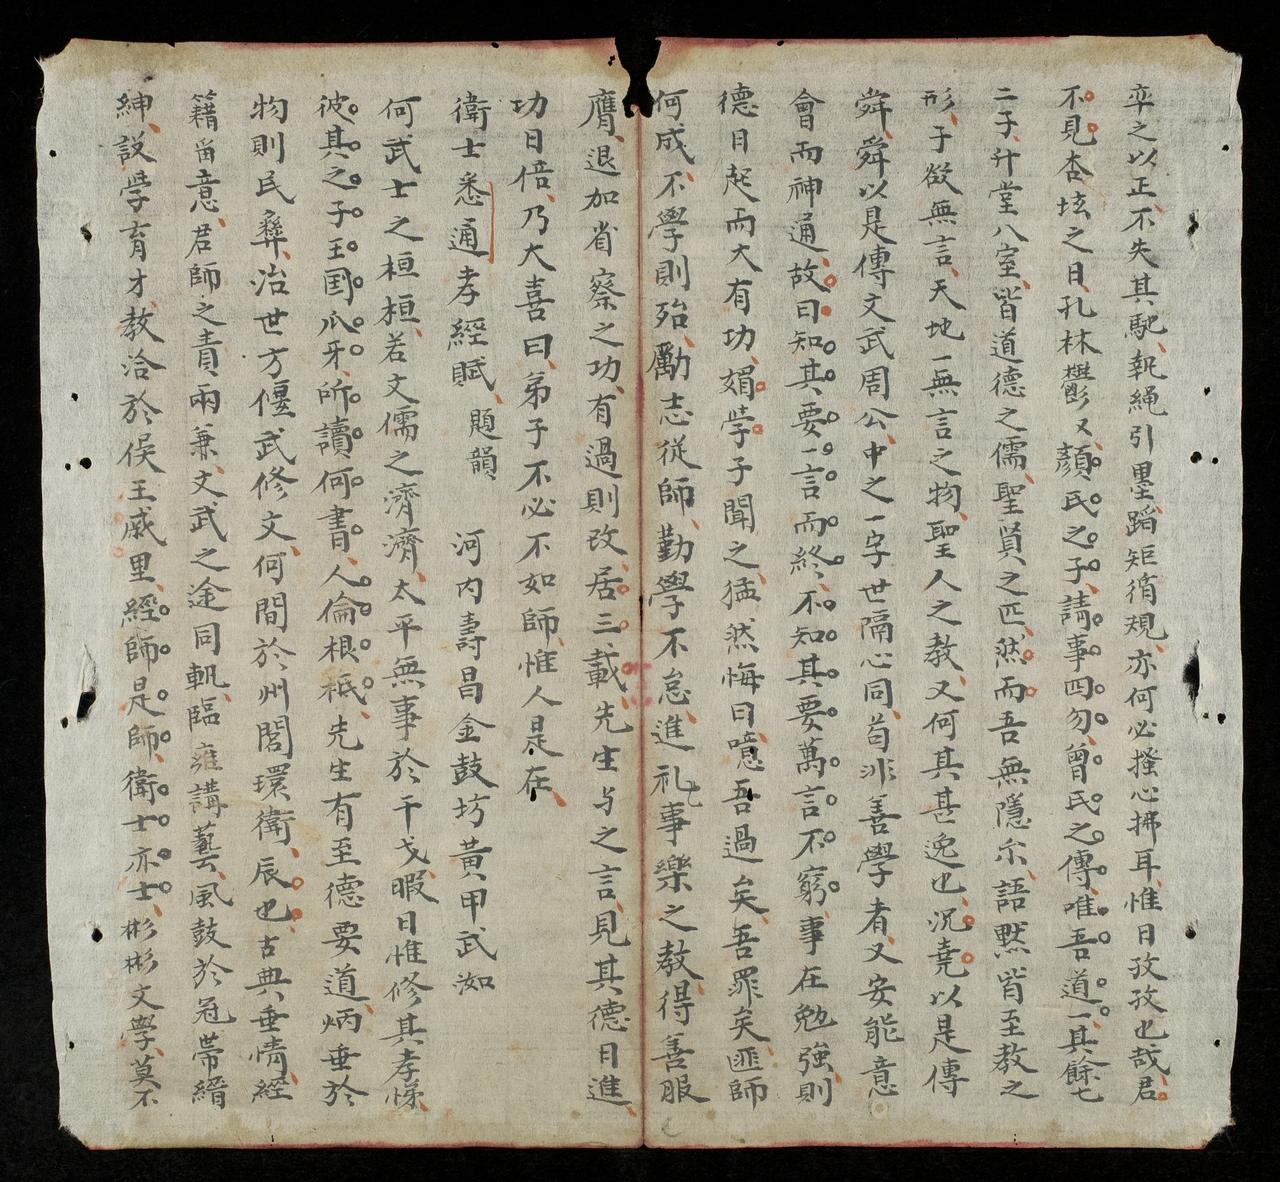 卒之以正、不失其馳、執绳引墨、蹈矩循規、亦何必搔心拂耳、惟日孜孜也哉、君
不見杏坛之日、孔林欝欝、又顏氏之子、請事四勿、曾氏之傳、唯吾道一、其餘七
二子、升堂八室、皆道德之儒、聖賢之匹、然而吾無隱尔、語默皆至教之
形、子欲無言、天地一無言之物、聖人之教、又何其甚逸也、况堯以是傳
舜、舜以是傳文武周公、中之一字、世隔心同、苟非善學者、又安能意
會而神通、故曰知其要、一言而終、不知其要、萬言不窮、事在勉強、則
德日起而大有功、媚斈子聞之、猛然悔曰、噫、吾過矣、吾罪矣、匪師
何成、不學則殆、勵志從師、勤學不怠、進礼七事、樂之教、得善服
膺、退加省察之功、有過則改、居三載、先生与之言、見其德日進、
功日倍、乃大喜曰、弟子不必不如師、惟人是在、
衛士悉通孝經賦、題韻　河内壽昌金鼓坊黄甲武㳶
何武士之桓桓、若文儒之濟濟、太平無事於干戈、暇日惟修其孝悌、
彼其之子、王囯爪牙、所讀何書、人倫根祇、先生有至德要道、炳垂於
物則民彝、治世方偃武修文、何間於州閭環衛、辰也、古典垂情、經
籍畱意、君師之責兩兼、文武之途同軌、臨雍講藝、風鼓於冠帶縉
紳、設學育才、教洽於侯王戚里、經師是師、衛士亦士、彬彬文學、莫不